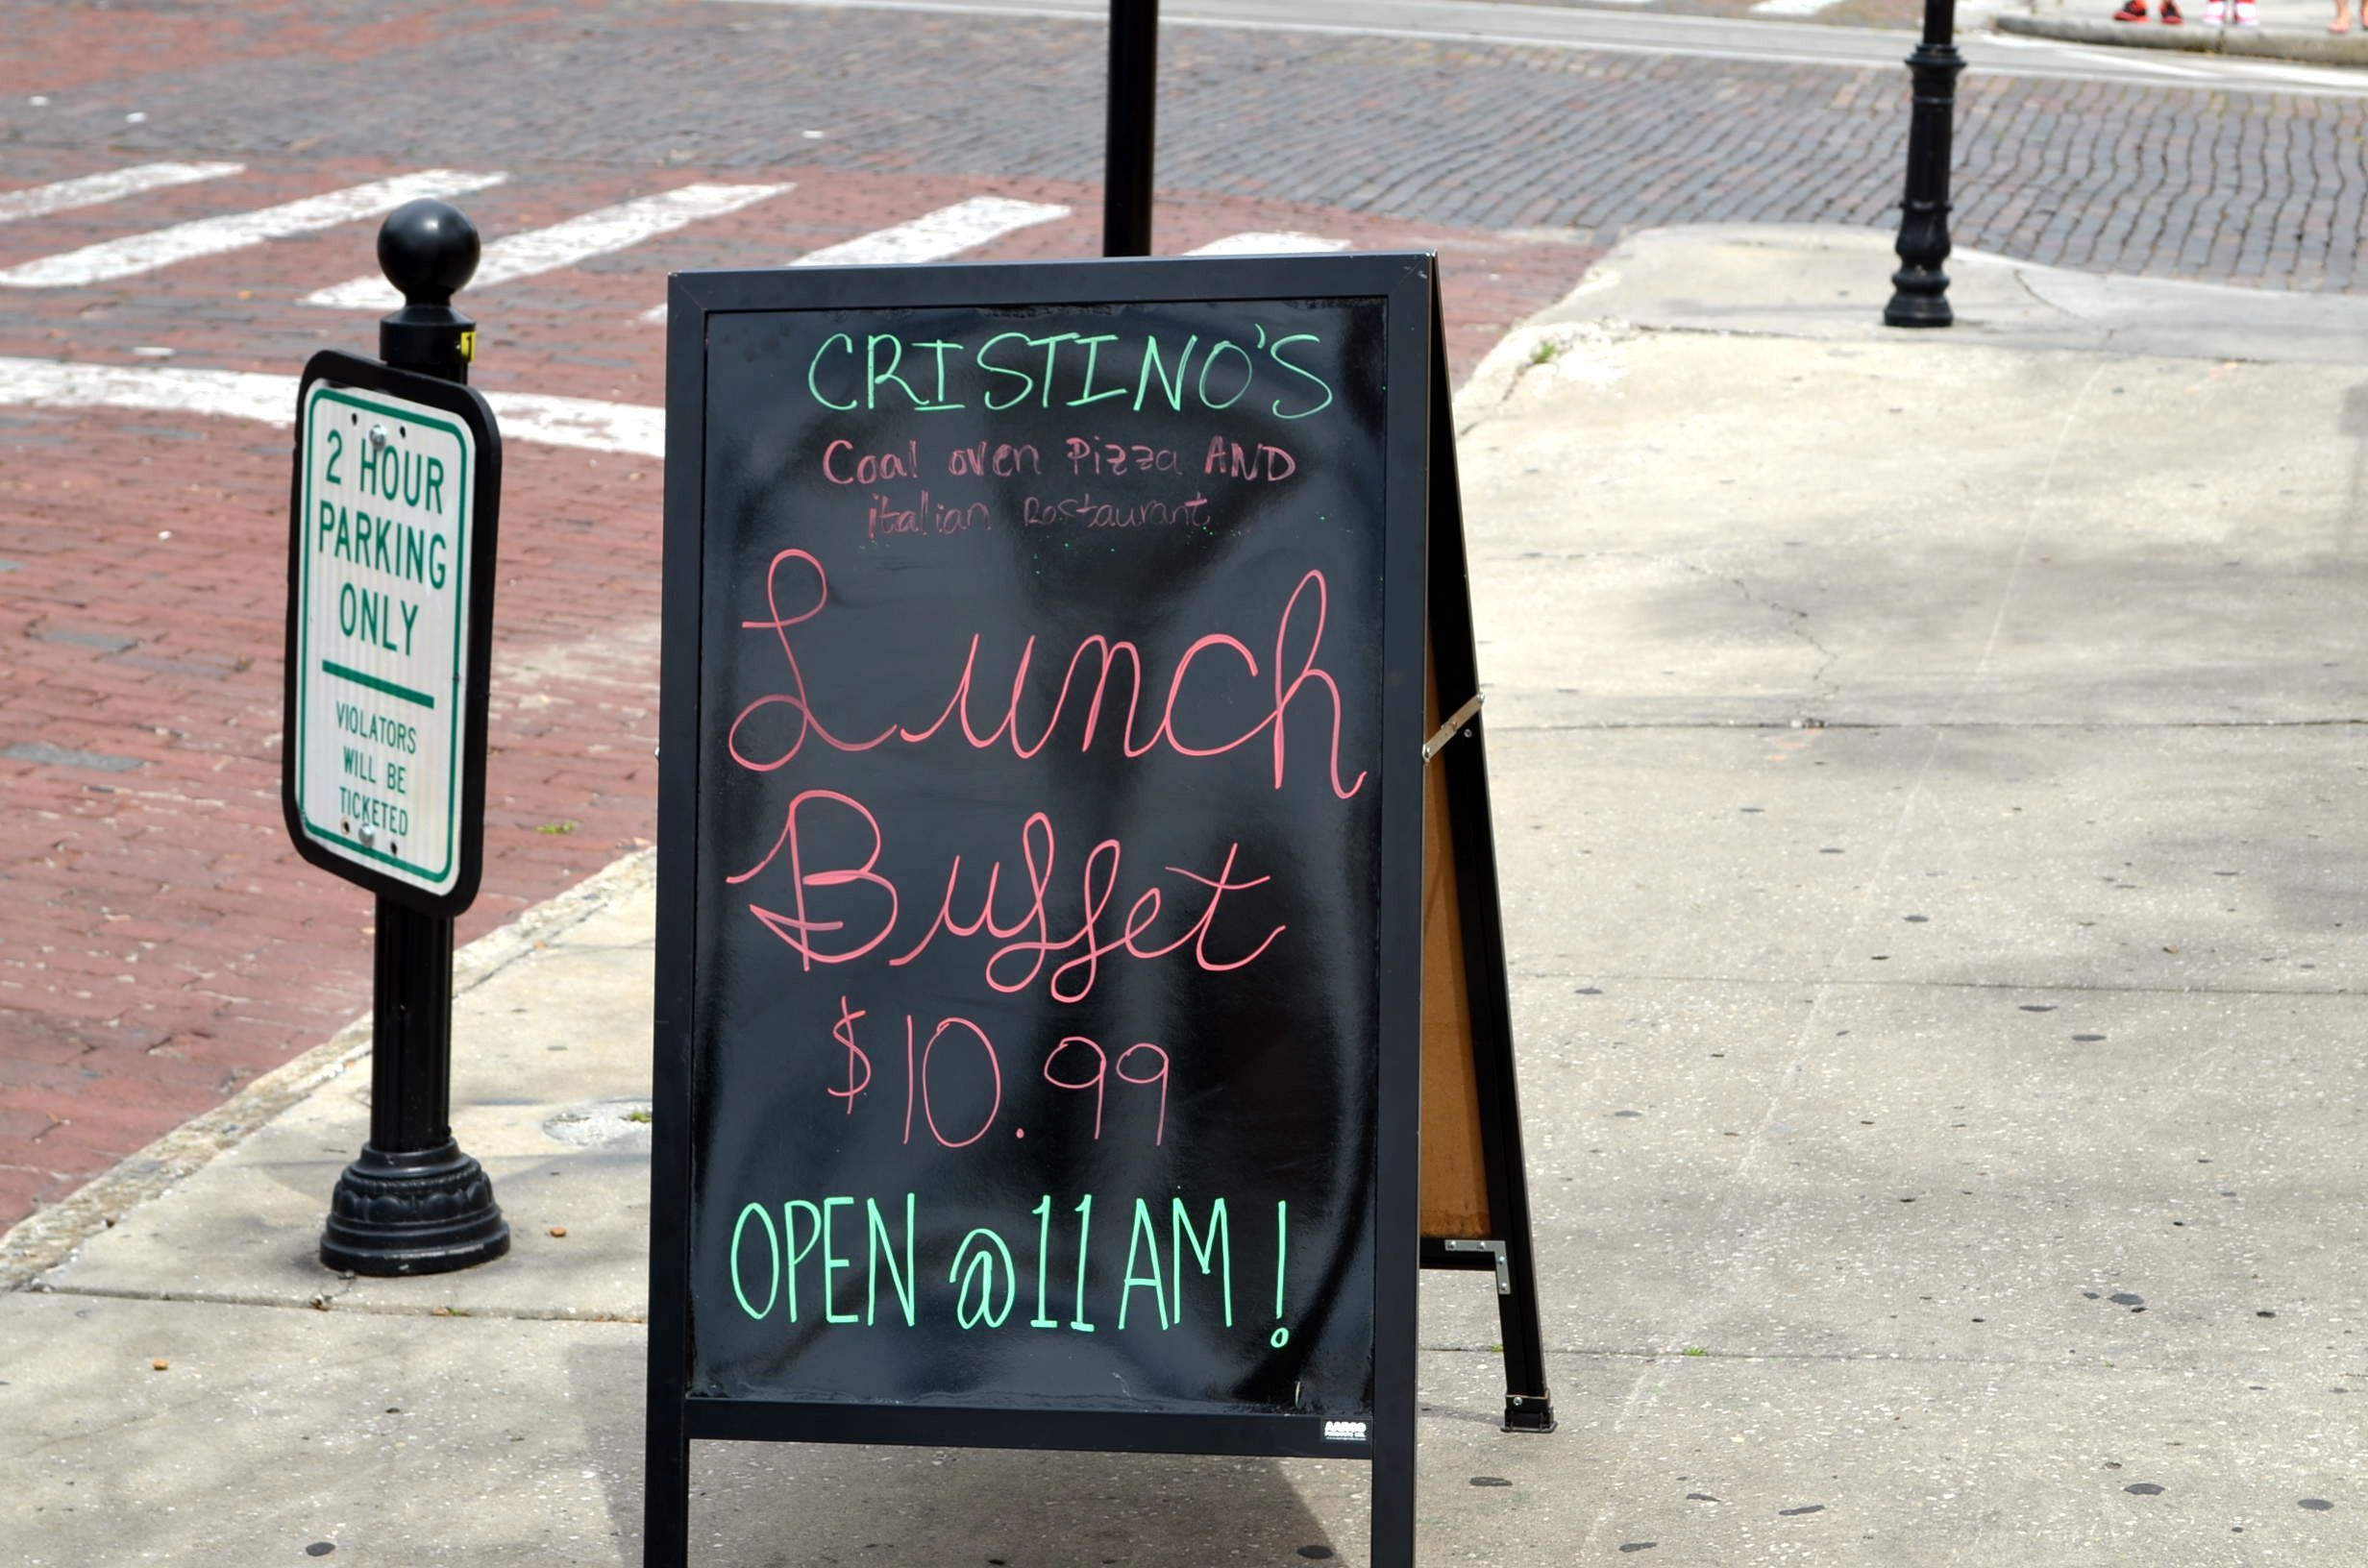 2 HOUR
PARKING
ONLY
VIOLATORS
WILL BE
TICKETED
CRISTINO'S
Coal oven Pizza AND
italian Rostaurant
Lunch
Buffet
$10.99
OPEN @ 11 AM!